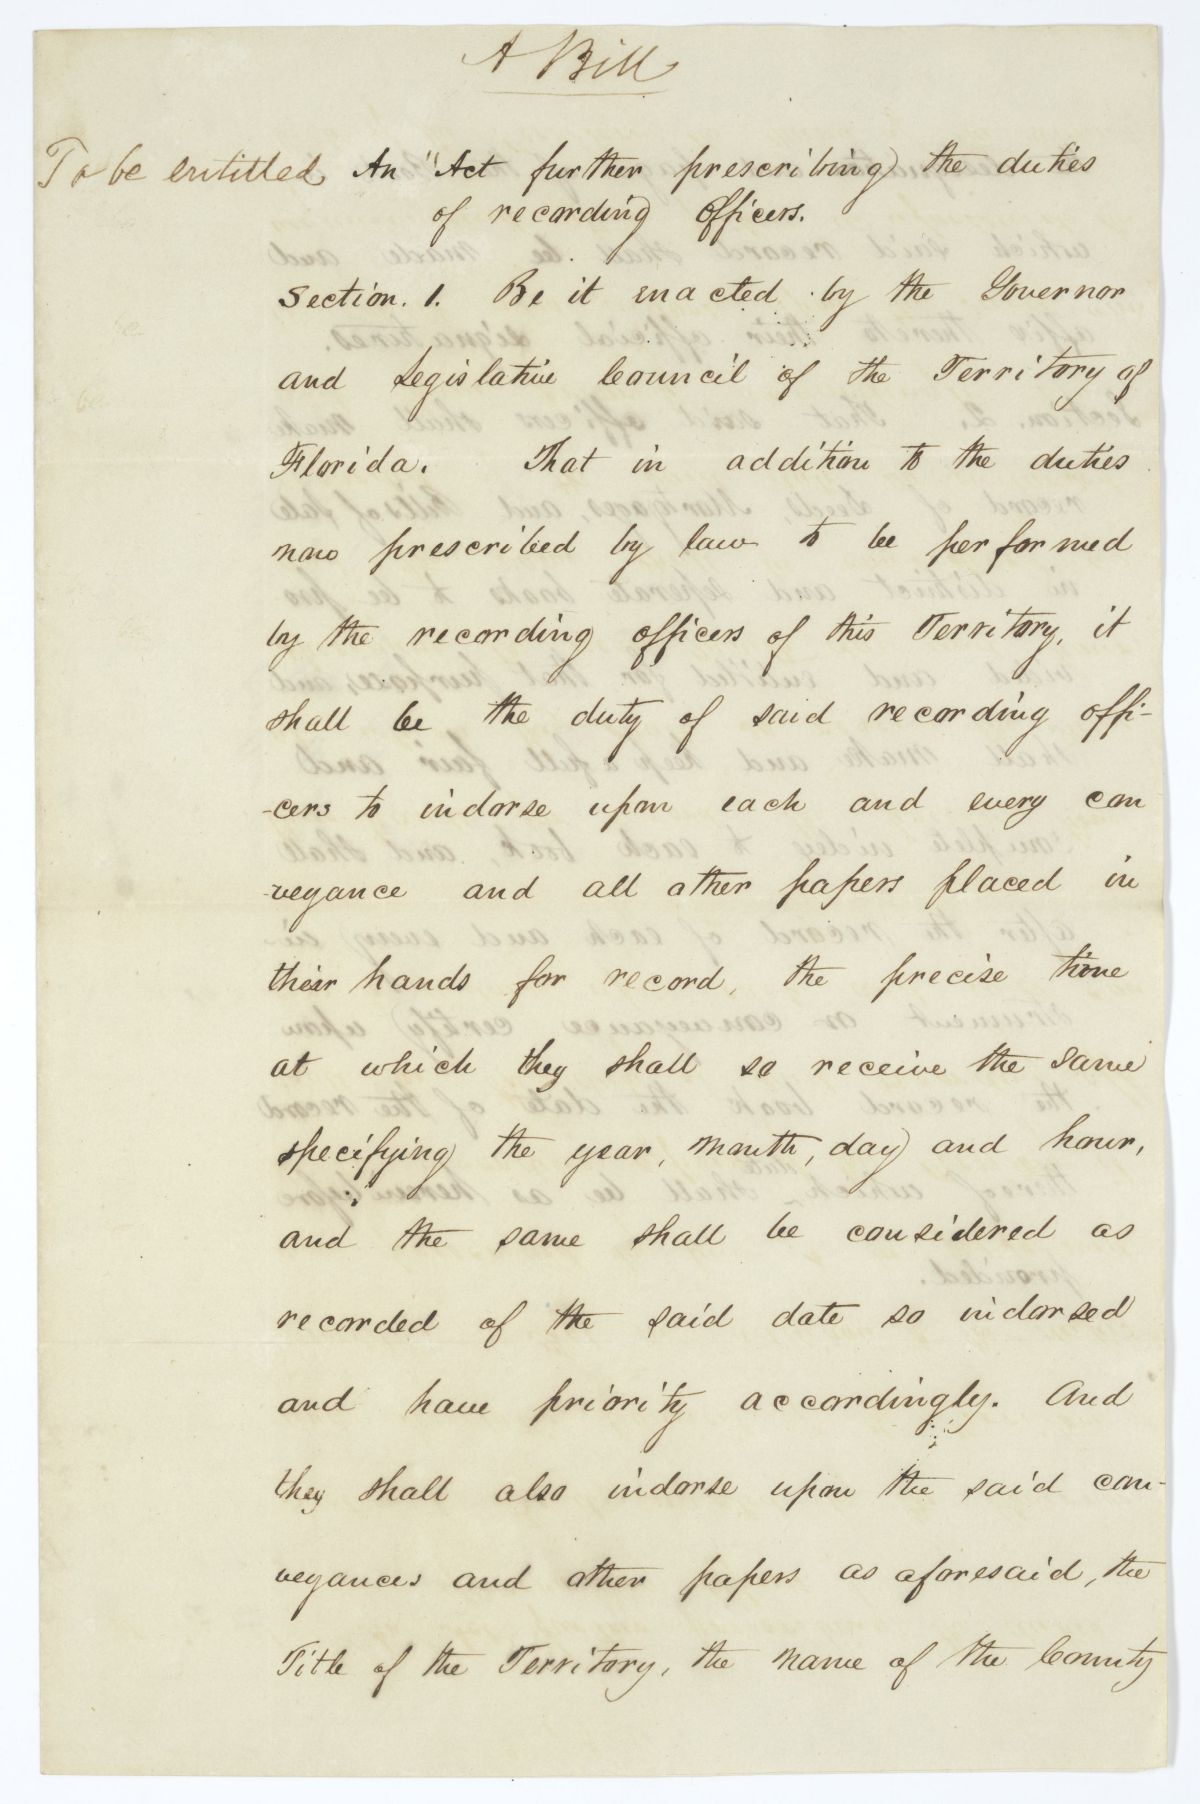 A Bill
To be entitled An "Act further prescribing the duties
of recording Officers.
Section. 1. Be it enacted by the Governor
and Legislative Council of the Territory of
Florida. That in addition to the duties
now prescribed by law to be performed
by the recording officers of this Territory, it
shall be the duty of said recording offi-
-cers to indorse upon each and every con
-veyance and all other papers placed in
their hands for record, the precise time
at which they shall so receive the same
specifying the year, month, day and hour,
and the same shall be considered as
recorded of the said date so indorsed
and have priority accordingly. And
they shall also indorse upon the said con-
veyances and other papers as aforesaid, the
Title of the Territory, the name of the County